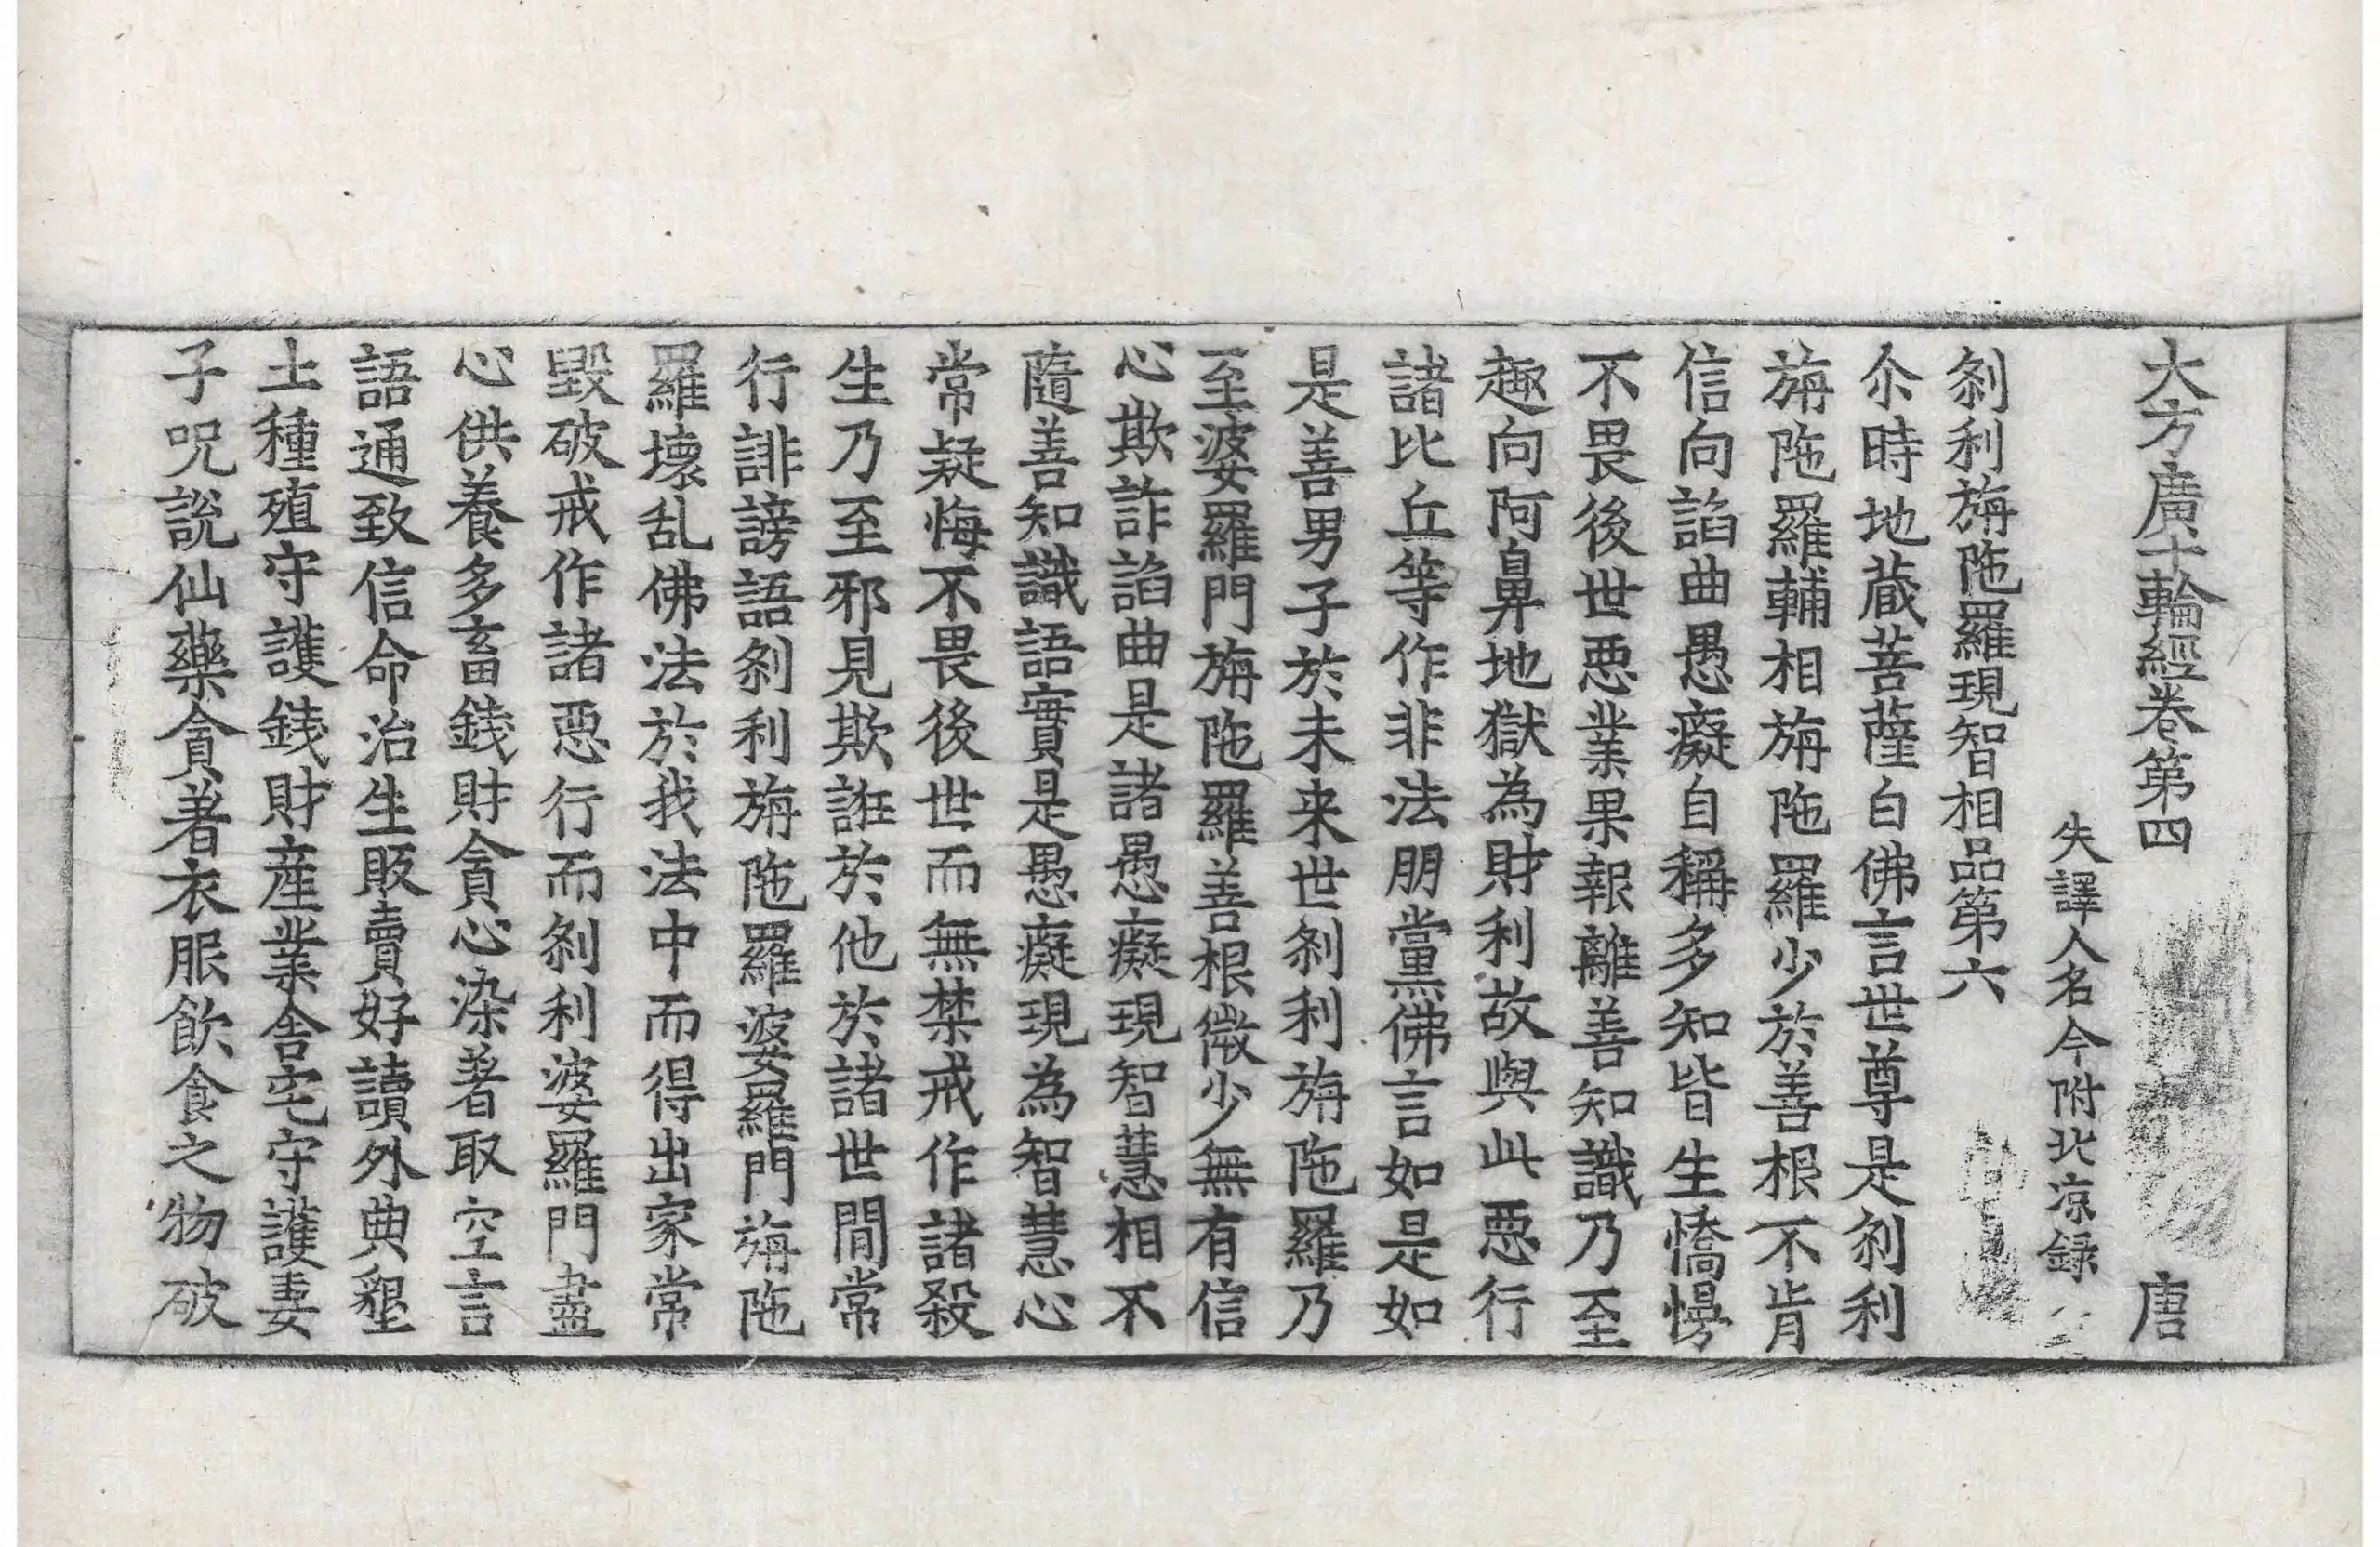 大方廣十輪經卷第四 唐
失譯人名今附北凉録
刹利旃陁羅現智相品第六
尒時地蔵菩薩白佛言世尊是刹利
旃陁羅輔相旃陁羅少於善根不肯
信向諂曲愚癡自稱多知皆生憍慢
不畏後世惡業果報離善知識乃至
趣向阿鼻地獄為財利故與此惡行
諸比丘等作非法朋黨佛言如是如
是善男子於未来世刹利旃陁羅乃
至婆羅門旃陁羅善根微少無有信
心欺詐諂曲是諸愚癡現智慧相不
隨善知識語實是愚癡現為智慧心
常疑悔不畏後世而無禁戒作諸殺
生乃至邪見欺誑於他於諸世間常
行誹謗語刹利旃陁羅婆羅門旃陁
羅壞乱佛法於我法中而得出家常
毀破戒作諸惡行而刹利婆羅門盡
心供養多畜錢財貪心染著取空言
語通致信命治生販賣好讀外典墾
土種殖守護錢財産業舎宅守護妻
子呪説仙藥貪著衣服飲食之物破